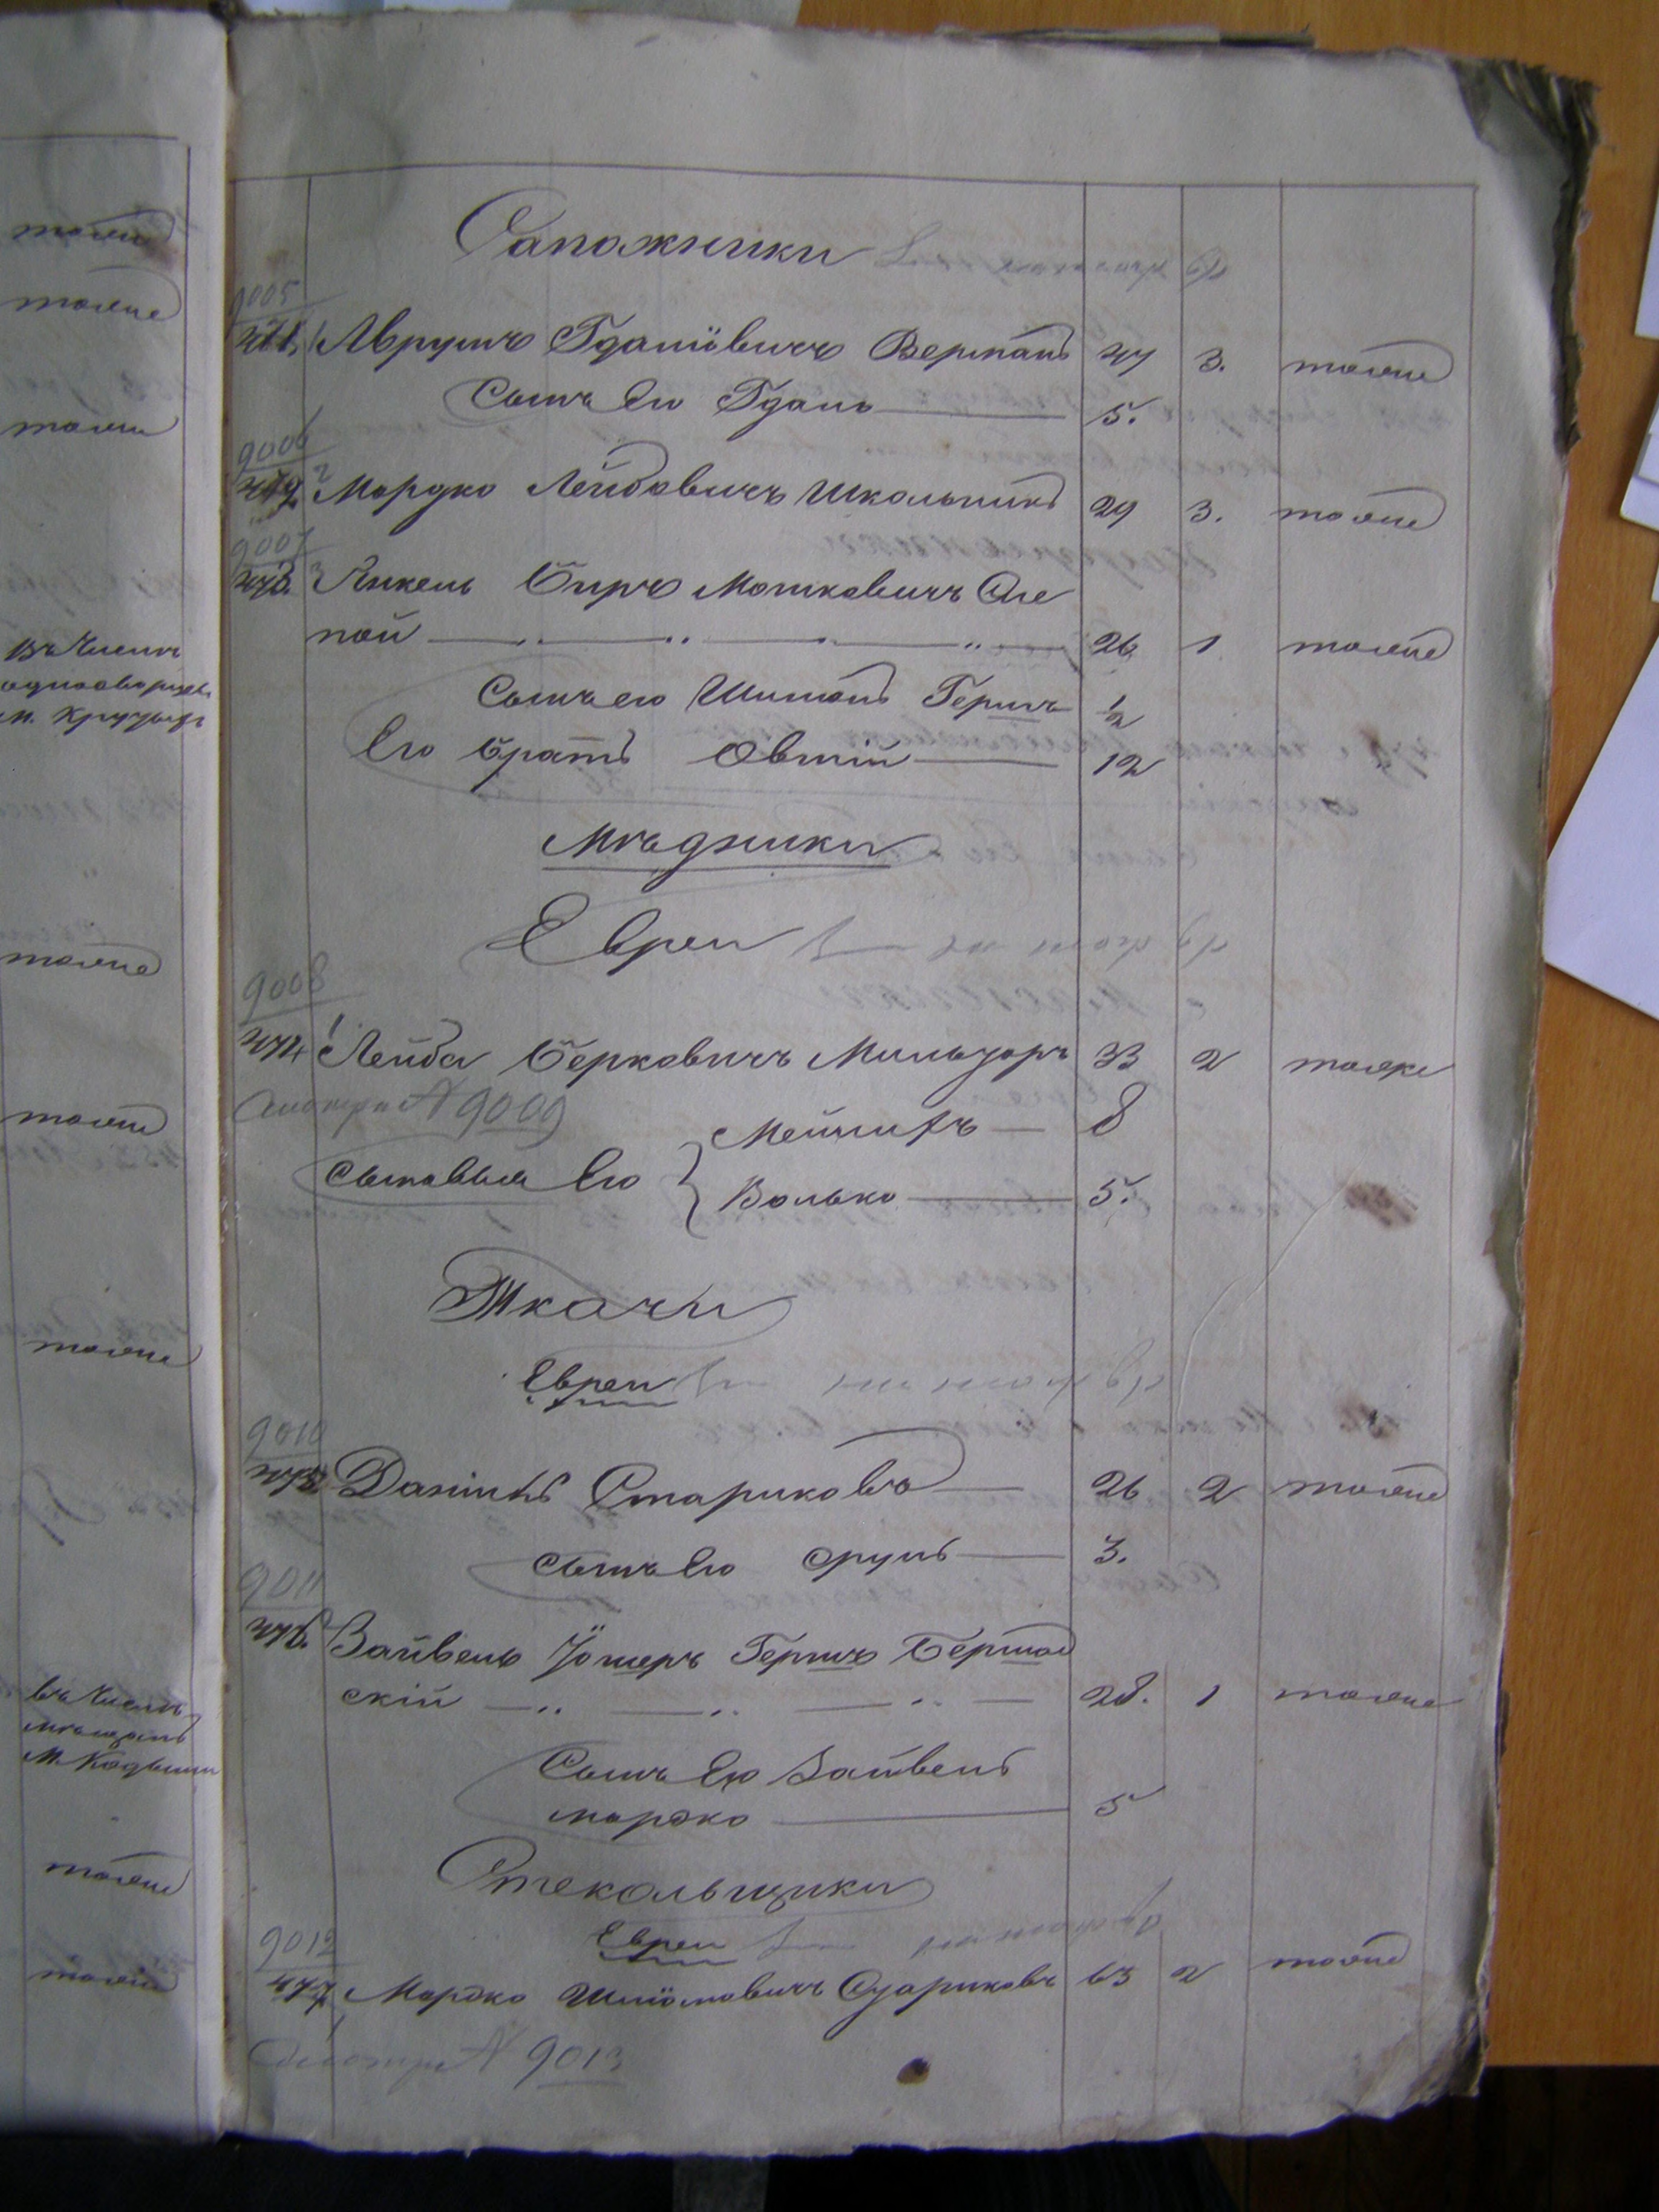 Сапожники
9005
471. 1 Аврумъ Гдаліовичъ Верманъ 47 3. тоже
Сынъ его Гдаль 5.
9006
472 2 Мордко Лейбовичъ Школьникъ 29 3. тоже
9007
473. 3 Янкель Биръ Мошковичъ Сле
пой 26 1 тоже
Сынъ его Шимонъ Гершъ ½
Его братъ Овшій 12
Мѣдники
Евреи
9008
474 1 Лейба Берковичъ Мильчоръ 33 2 тоже
смотри № 9009
Сыновья его { Мейлихъ 8
Волько 5.
Ткачи
Евреи
9010
475 Даніилъ Стариковъ 26 2 тоже
сынъ его Срулъ 3.
9011
476. 2 Зайвель Іошеръ Гершъ Бершад
скій 28. 1 тоже
Сынъ его Зайвель
мордко 5
Стекольщики
Евреи
9012
477 Мордко Шліомовичъ Судариковъ 63 2 тоже
смотри № 9013
тоже
тоже
тоже
въ числѣ
однодворцевъ
м.
тоже
тоже
тоже
въ числѣ
мѣщанъ
М. Кодыми
тоже
тоже